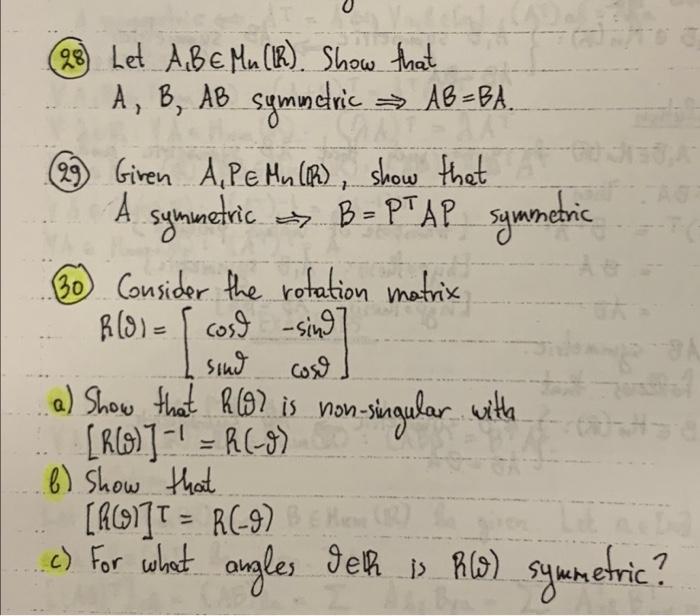 28 Let A,B∈Mn(ℝ). Show that
A, B, AB symmetric ⇒ AB=BA.
29 Given A,P∈Mn(ℝ), show that
A symmetric ⇒ B = PᵀAP symmetric
30 Consider the rotation matrix
R(ϑ) = [ cosϑ -sinϑ
sinϑ cosϑ ]
a) Show that R(ϑ) is non-singular with
[R(ϑ)]⁻¹ = R(-ϑ)
b) Show that
[R(ϑ)]ᵀ = R(-ϑ)
c) For what angles ϑ∈ℝ is R(ϑ) symmetric?